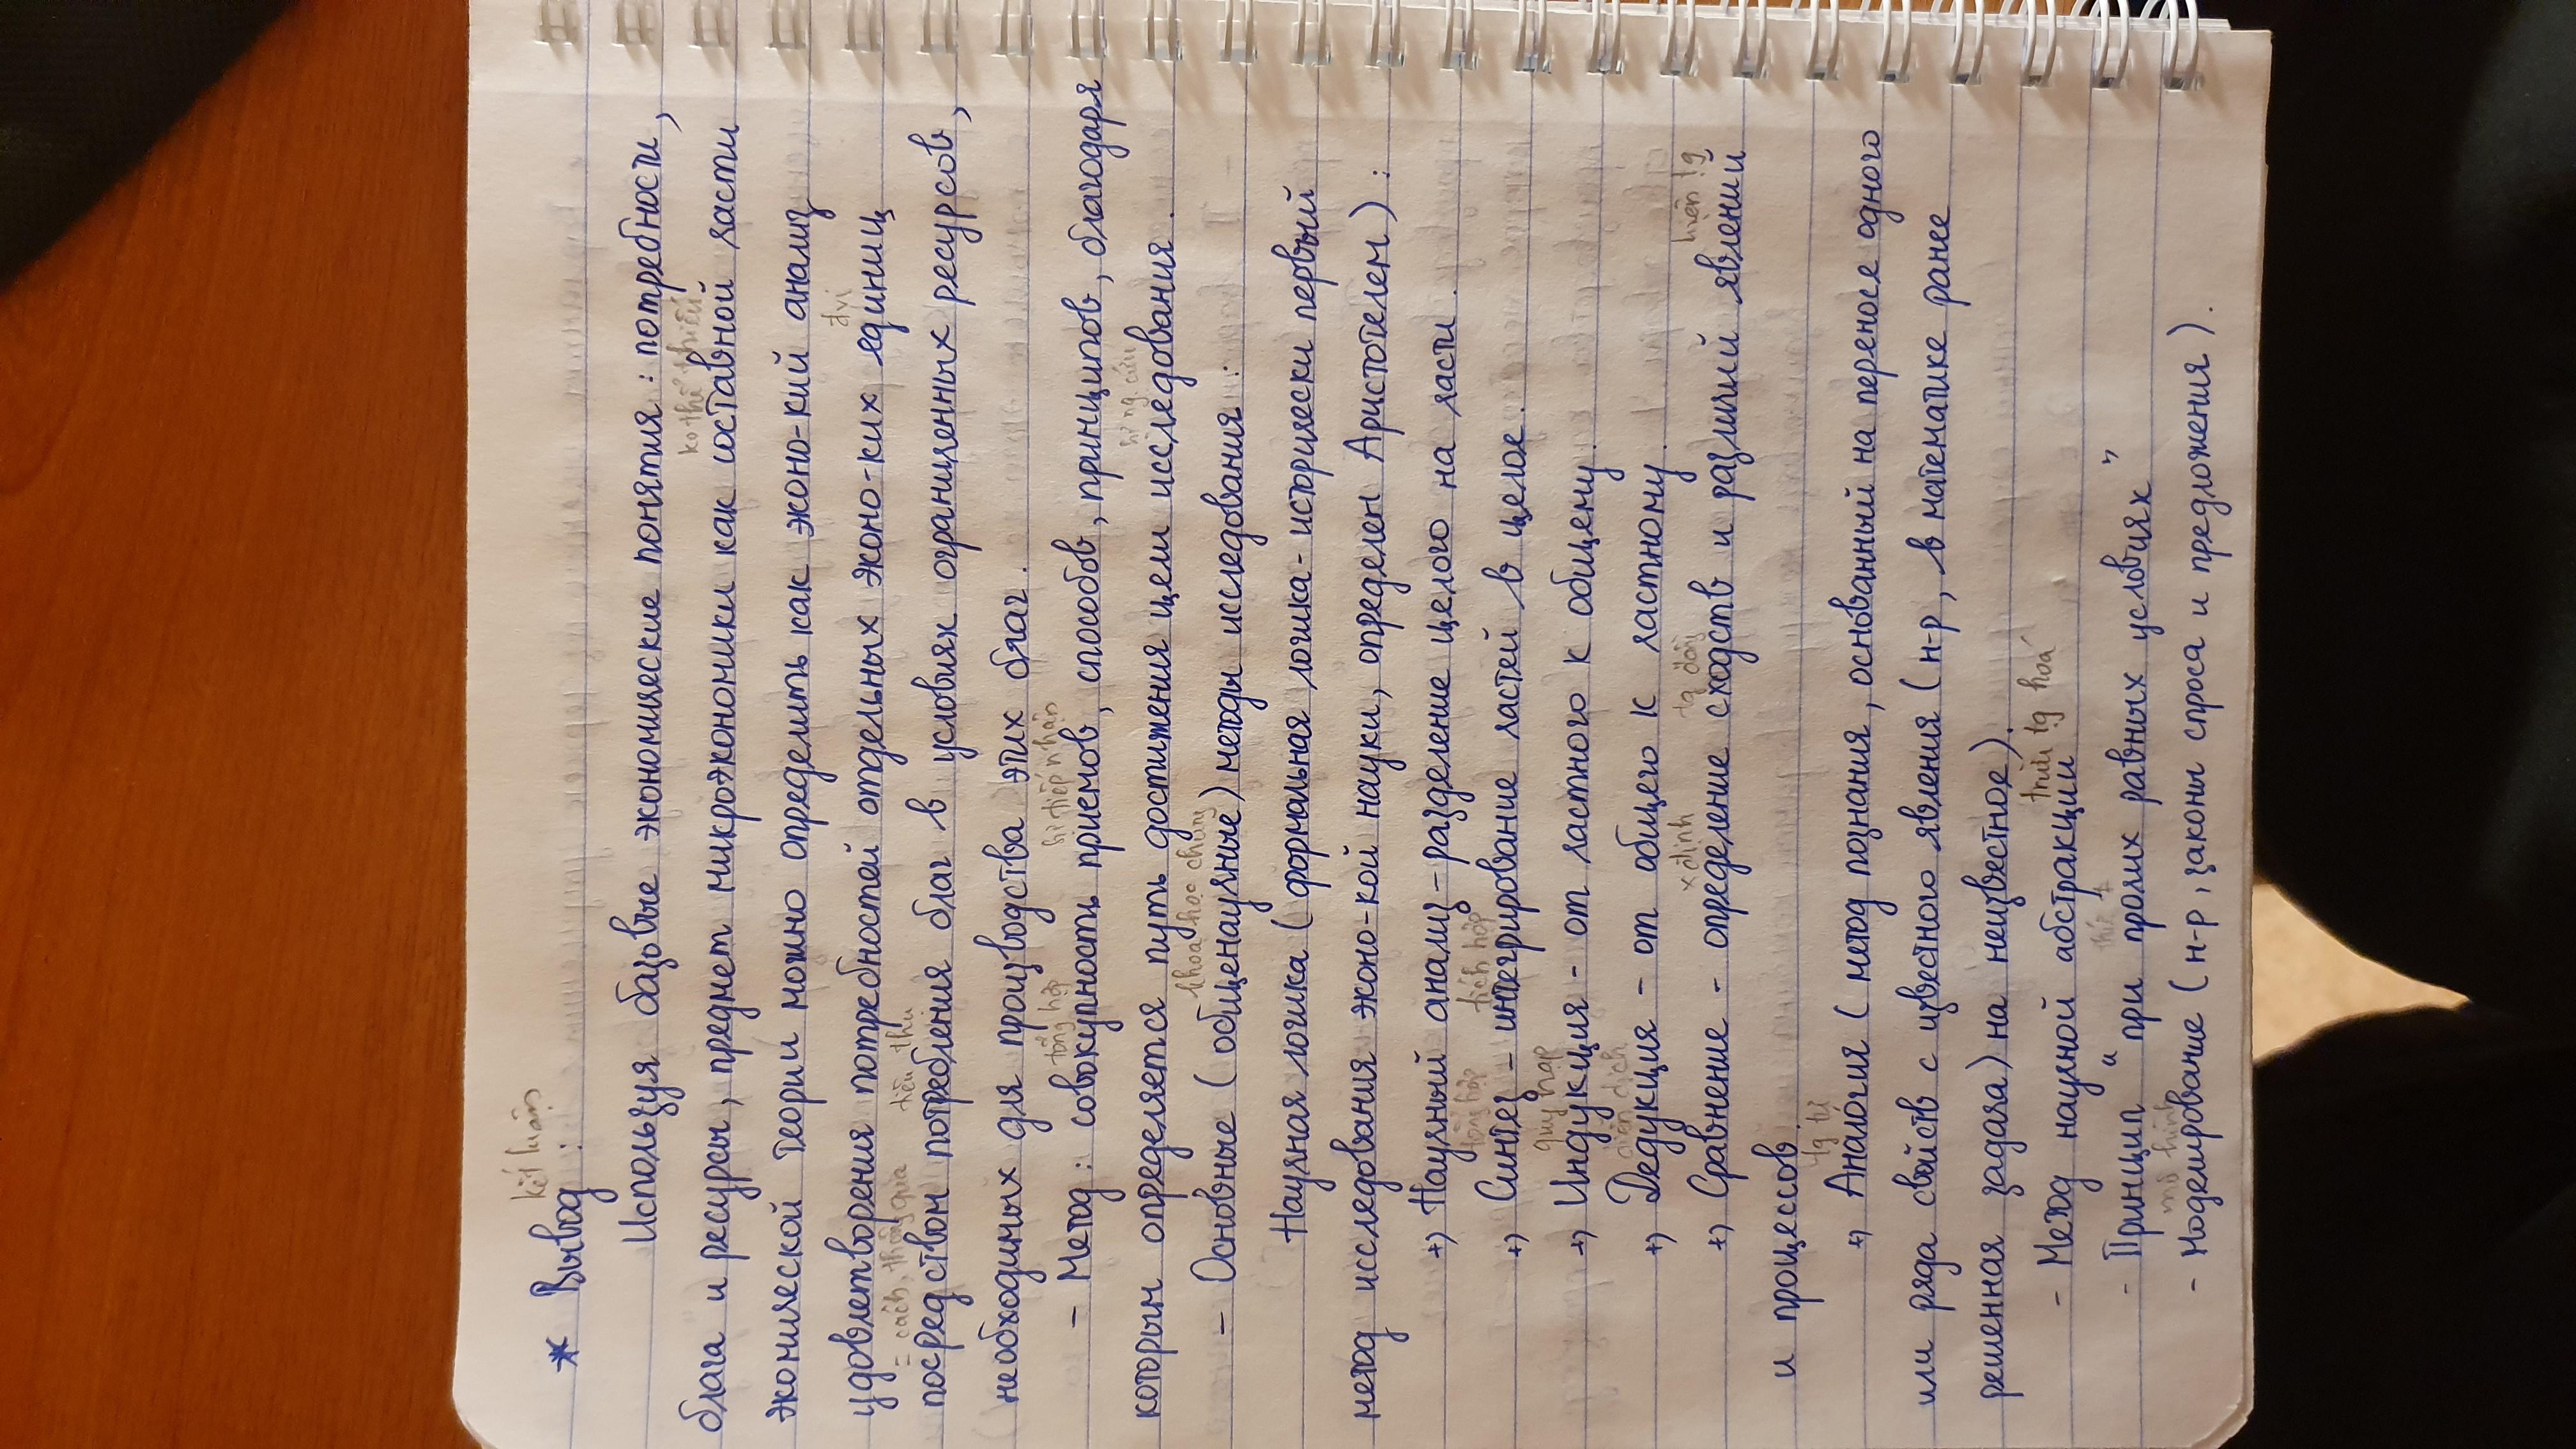 kết luận
* Вывод :
Используя базовые экономические понятия : потребности,
ko thể thiếu
блага и ресурсы, предмет микроэкономики как составной части
экомической теории можно определить как эконо-кий анализ
đvị
удовлетворения потребностей отдельных эконо-ких единиц
= cách, thông qua tiêu thụ
посредством потребления благ в условиях ограниченных ресурсов,
необходимых для производства этих благ.
tổng hợp tiếp nhận
- Метод: совокупность приемов, способов, принципов, благодаря
ng. cứu
которым определяется путь достижения цели исследования.
khoa học chung
- Основные (общенаучные) методы исследования :
Научная логика ( формальная логика - исторически первый
метод исследования эконо-кой науки, определен Аристотелем ) :
+) Научный анализ - разделение целого на части.
tổng hợp tích hợp
+) Синтез - интегрирование частей в целое.
quy nạp
+) Индукция - от частного к общему.
diễn dịch
+) Дедукция - от общего к частному.
x định tg đồng hiện tg
+) Сравнение - определение сходств и различий явлений
и процессов.
tg tự
+) Аналогия ( метод познания, основанный на переносе одного
или ряда свойств с известного явления ( н-р, в математике ранее
решенная задача) на неизвестное).
trừu tg hoá
- Метод научной абстракции
- Принцип "при прочих равных условиях"
mô hình
- Моделирование ( н-р, законы спроса и предложения ).